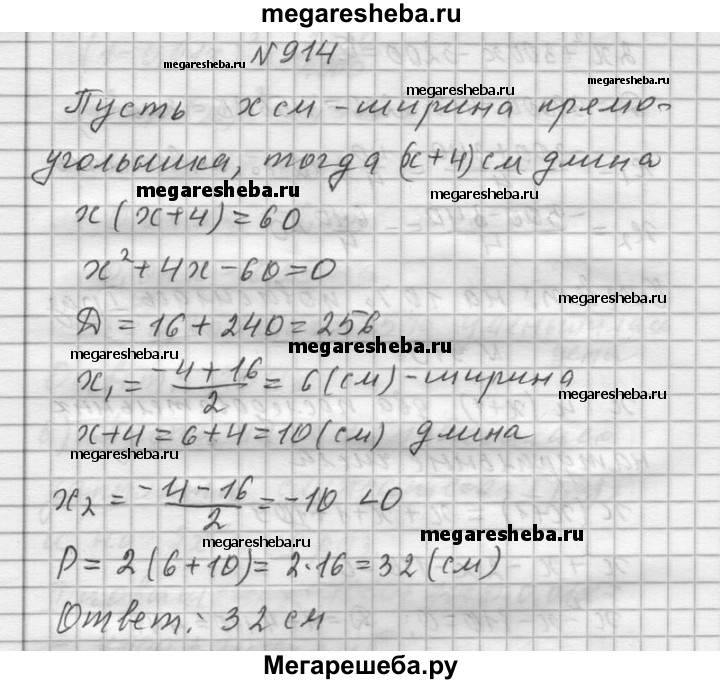 megaresheba.ru
№914
megaresheba.ru
megaresheba.ru
Пусть x см - ширина прямо-
угольника, тогда (x+4) см длина
megaresheba.ru
x(x+4)=60
x²+4x-60=0
megaresheba.ru
Д = 16+240=256
megaresheba.ru
megaresheba.ru
x₁ = (-4+16)/2 = 6(см) - ширина
x+4=6+4=10(см) длина
megaresheba.ru
x₂ = (-4-16)/2 = -10 <0
megaresheba.ru
megaresheba.ru
P = 2(6+10)= 2·16=32(см)
Ответ: 32 см
megaresheba.ru
Мегарешеба.ру